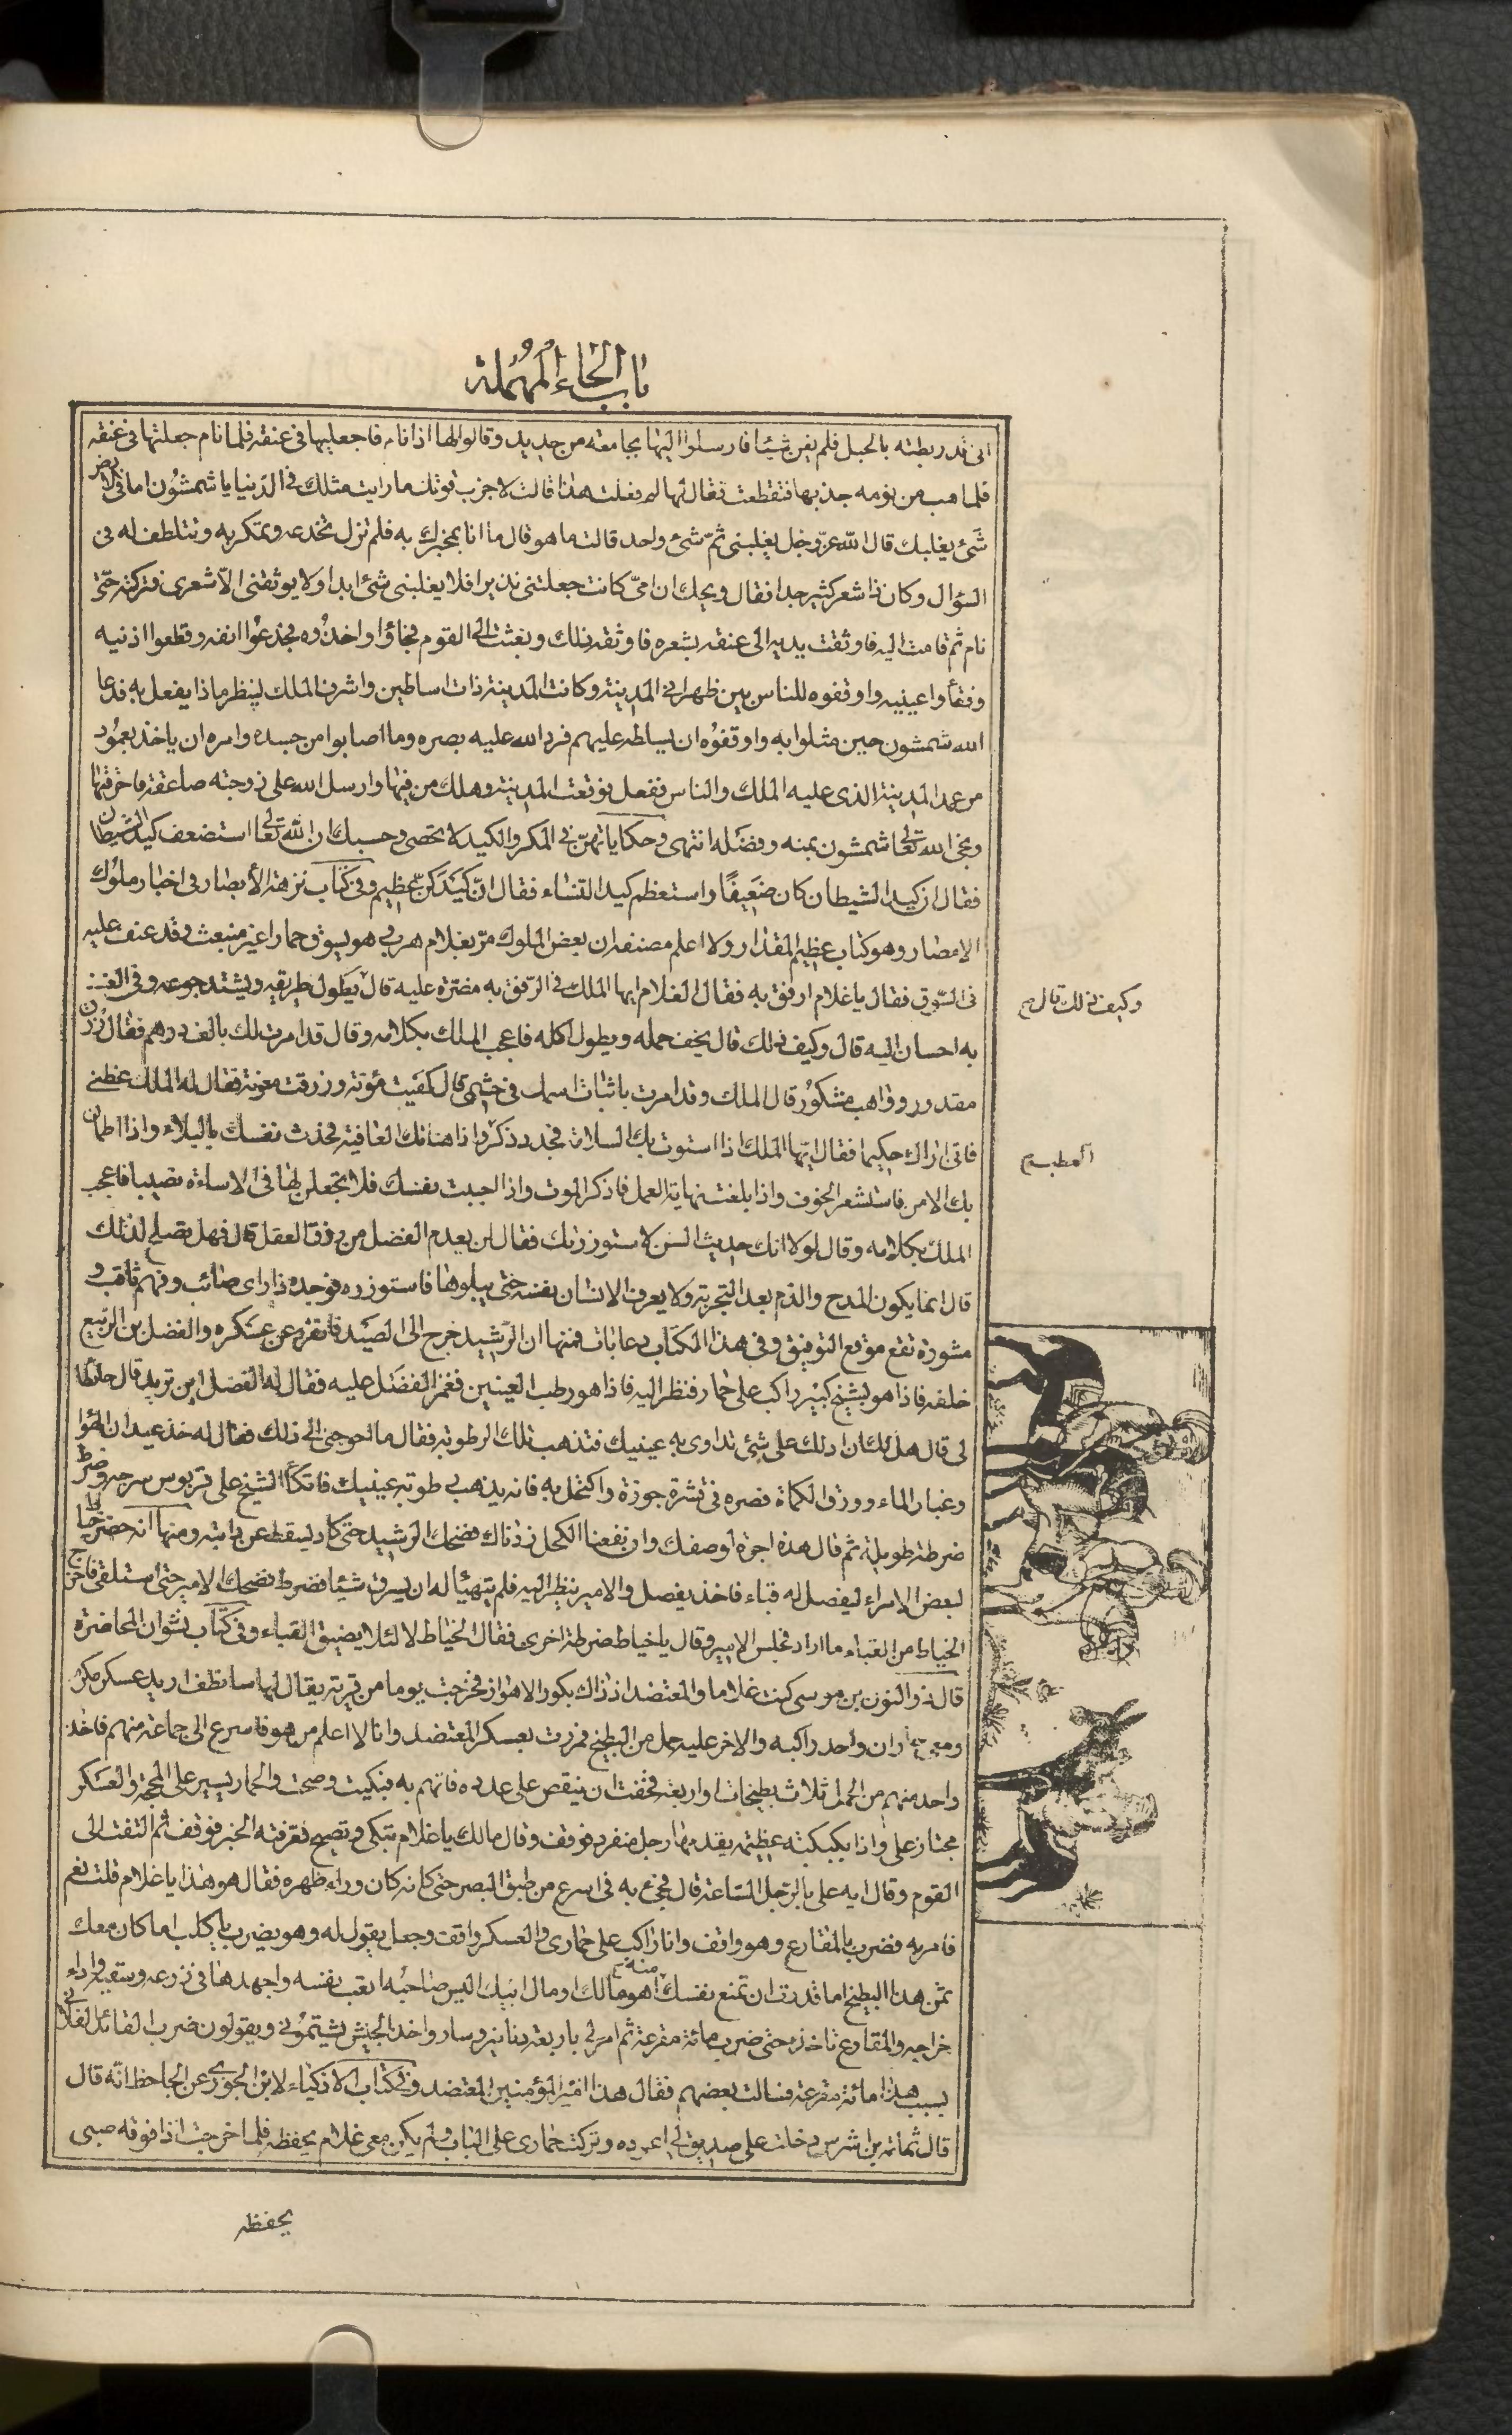 باب الحاء المهملة
انى قد ربطته بالحبل فلم يغن شيئا فارسلوا اليها بجامعة من حديد وقالوا لها اذا نام فاجعليها فى عنقه فلما نام جعلتها فى عنقه
فلما هب من نومه جذبها فتقطعت فقال لها لم فعلت هذا قالت لاجرب قوتك ما رايت مثلك فى الدنيا يا شمشون اما فى الارض
شئ يغلبك قال الله عز وجل يغلبنى ثم شئ واحد قالت ما هو قال ما انا بمخبرك به فلم تزل تخدعه وتمكر به وتتلطف له فى
السؤال وكان ذا شعر كثير جدا فقال ويحك ان امى كانت جعلتنى نذيرا فلا يغلبنى شئ ابدا ولا يوثقنى الا شعرى فتركته حتى
نام ثم قامت اليه فاوثقت يديه الى عنقه بشعره فاوثقه ذلك وبعثت الى القوم فجاؤا واخذوه فجدعوا انفه وقطعوا اذنيه
وفقأوا عينيه واوقفوه للناس بين ظهرانى المدينة وكانت المدينة ذات اساطين واشرف الملك لينظر ماذا يفعل به فدعا
الله شمشون حين مثلوا به واوقفوه ان يسلطه عليهم فرد الله عليه بصره وما اصابوا من جسده وامره ان ياخذ بعمود
من عمد المدينة الذى عليه الملك والناس ففعل فوقعت المدينة وهلك من فيها وارسل الله على زوجته صاعقة فاحرقتها
ونجى الله تعالى شمشون بمنه وفضله انتهى وحكاياتهن فى المكر والكيد لا تحصى وحسبك ان الله تعالى استضعف كيد الشيطان
فقال ان كيد الشيطان كان ضعيفا واستعظم كيد النساء فقال ان كيدكن عظيم وفى كتاب نزهة الأبصار فى اخبار ملوك
الامصار وهو كتاب عظيم المقدار ولا اعلم مصنفه ان بعض الملوك مر بغلام هربى وهو يسوق حمارا غير منبعث وقد عنف عليه
فى السوق فقال يا غلام ارفق به فقال الغلام ايها الملك فى الرفق به مضرة عليه قال يطول طريقه ويشتد جوعه وفى العنف
وكيف ذلك قال صح
به احسان اليه قال وكيف ذلك قال يخف حمله ويطول اكله فاعجب الملك بكلامه وقال قد امرت لك بالف درهم فقال رزق
مقدور وواهب مشكور قال الملك وقد امرت باثبات اسمك فى حشمى قال كفيت مؤنة ورزقت معونة فقال له الملك عظنى
فانى اراك حكيما فقال ايها الملك اذا استوت بك السلامة فجدد ذكر واذا هنأتك العافية فحدث نفسك بالبلاء واذا اطمان
بك الامن فاستشعر الخوف واذا بلغت نهاية العمل فاذكر الموت واذا احببت نفسك فلا تجعلن لها فى الاساءة نصيبا فاعجب
الملك بكلامه وقال لولا انك حديث السن لاستوزرتك فقال لن يعدم الفضل من رزق العقل قال فهل تصلح لذلك
قال انما يكون المدح والذم بعد التجربة ولا يعرف الانسان نفسه حتى يبلوها فاستوزره فوجده ذا راى صائب وفهم ثاقب و
مشورة تقع موقع التوفيق وفى هذا الكتاب دعابات فمنها ان الرشيد خرج الى الصيد فانفرد عن عسكره والفضل بن الربيع
خلفه فاذا هو بشيخ كبير راكب على حمار فنظر اليه فاذا هو رطب العينين فغمز الفضل عليه فقال له الفضل اين تريد قال حائطا
لى قال هل لك ان ادلك على شئ تداوى به عينيك فتذهب تلك الرطوبة فقال ما احوجنى الى ذلك فقال له خذ عيدان الهوا
وغبار الماء وورق الكماة فصره فى قشرة جوزة واكتحل به فانه يذهب رطوبة عينيك فاتكأ الشيخ على قربوس سرجه وضرط
ضرطة طويلة ثم قال هذه اجرة لوصفك وان نفعنا الكحل زدناك فضحك الرشيد حتى كاد يسقط عن دابته ومنها انه حضر خياط
لبعض الامراء ليفصل له قباء فاخذ يفصل والامير ينظر اليه فلم يتهيأ له ان يسرق شيئا فضرط فضحك الامير حتى استلقى فاخرج
الخياط من القباء ما اراد فجلس الامير وقال يا خياط ضرطة اخرى فقال الخياط لا لئلا يضيق القباء وفى كتاب نشوان المحاضرة
قال ذو النون بن موسى كنت غلاما والمعتضد اذ ذاك بكور الاهواز فخرجت يوما من قرية يقال لها سانطف اريد عسكر مكرم
ومعى حماران واحد راكبه والاخر عليه حمل من البطيخ فمررت بعسكر المعتضد وانا لا اعلم من هو فاسرع الى جماعة منهم فاخذ
واحد منهم من الحمل ثلاث بطيخات او اربعة فخفت ان ينقص على عدده فاتهم به فبكيت وصحت والحمار يسير على المحجة والعسكر
مجتاز على واذا بكبكبة عظيمة يقدمها رجل منفرد فوقف وقال مالك يا غلام تبكى وتصيح فعرفته الخبر فوقف ثم التفت الى
القوم وقال ايه على بالرجل الساعة قال فجئ به فى اسرع من طبق البصر حتى كانه كان وراء ظهره فقال هو هذا يا غلام قلت نعم
فامر به فضرب بالمقارع وهو واقف وانا راكب على حمارى والعسكر واقف وجعل يقول له وهو يضرب يا كلب اما كان معك
ثمن هذا البطيخ اما قدرت ان تمنع نفسك منه اهو مالك او مال ابيك اليس صاحبه اتعب نفسه واجهدها فى زرعه وسقيه واداء
خراجه والمقارع تاخذه حتى ضرب مائة مقرعة ثم امر لى باربعة دنانير وسار واخذ الجيش يشتمونى ويقولون ضرب القائد الفلانى
بسبب هذا مائة مقرعة فسالت بعضهم فقال هذا امير المؤمنين المعتضد وفى كتاب الاذكياء لابن الجوزى عن الجاحظ انه قال
قال ثمامة بن اشرس دخلت على صديق لى اعوده وتركت حمارى على الباب ولم يكن معى غلام يحفظه فلما خرجت اذا فوقه صبى
يحفظه